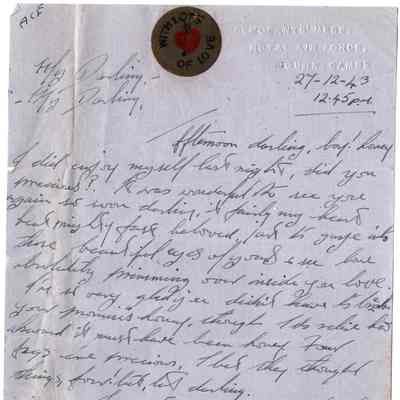 ACE
WITH LOTS
OF LOVE
ROYAL AIR FORCE,
27-12-43
12.45 p.m.
My Darling,-
-My Darling,
Afternoon darling, boy! honey
I did enjoy myself last night, did you
precious? It was wonderful to see you
again so soon darling, it fairly my heart
beat mighty fast beloved, and to gaze into
those beautiful eyes of yours & see love
absolutely brimming over inside you love.
I'm so very glad you didn't have to break
your promise honey, though I do realise how
awkward it must have been honey. Four
days one precious, I bet they thought
things darling.